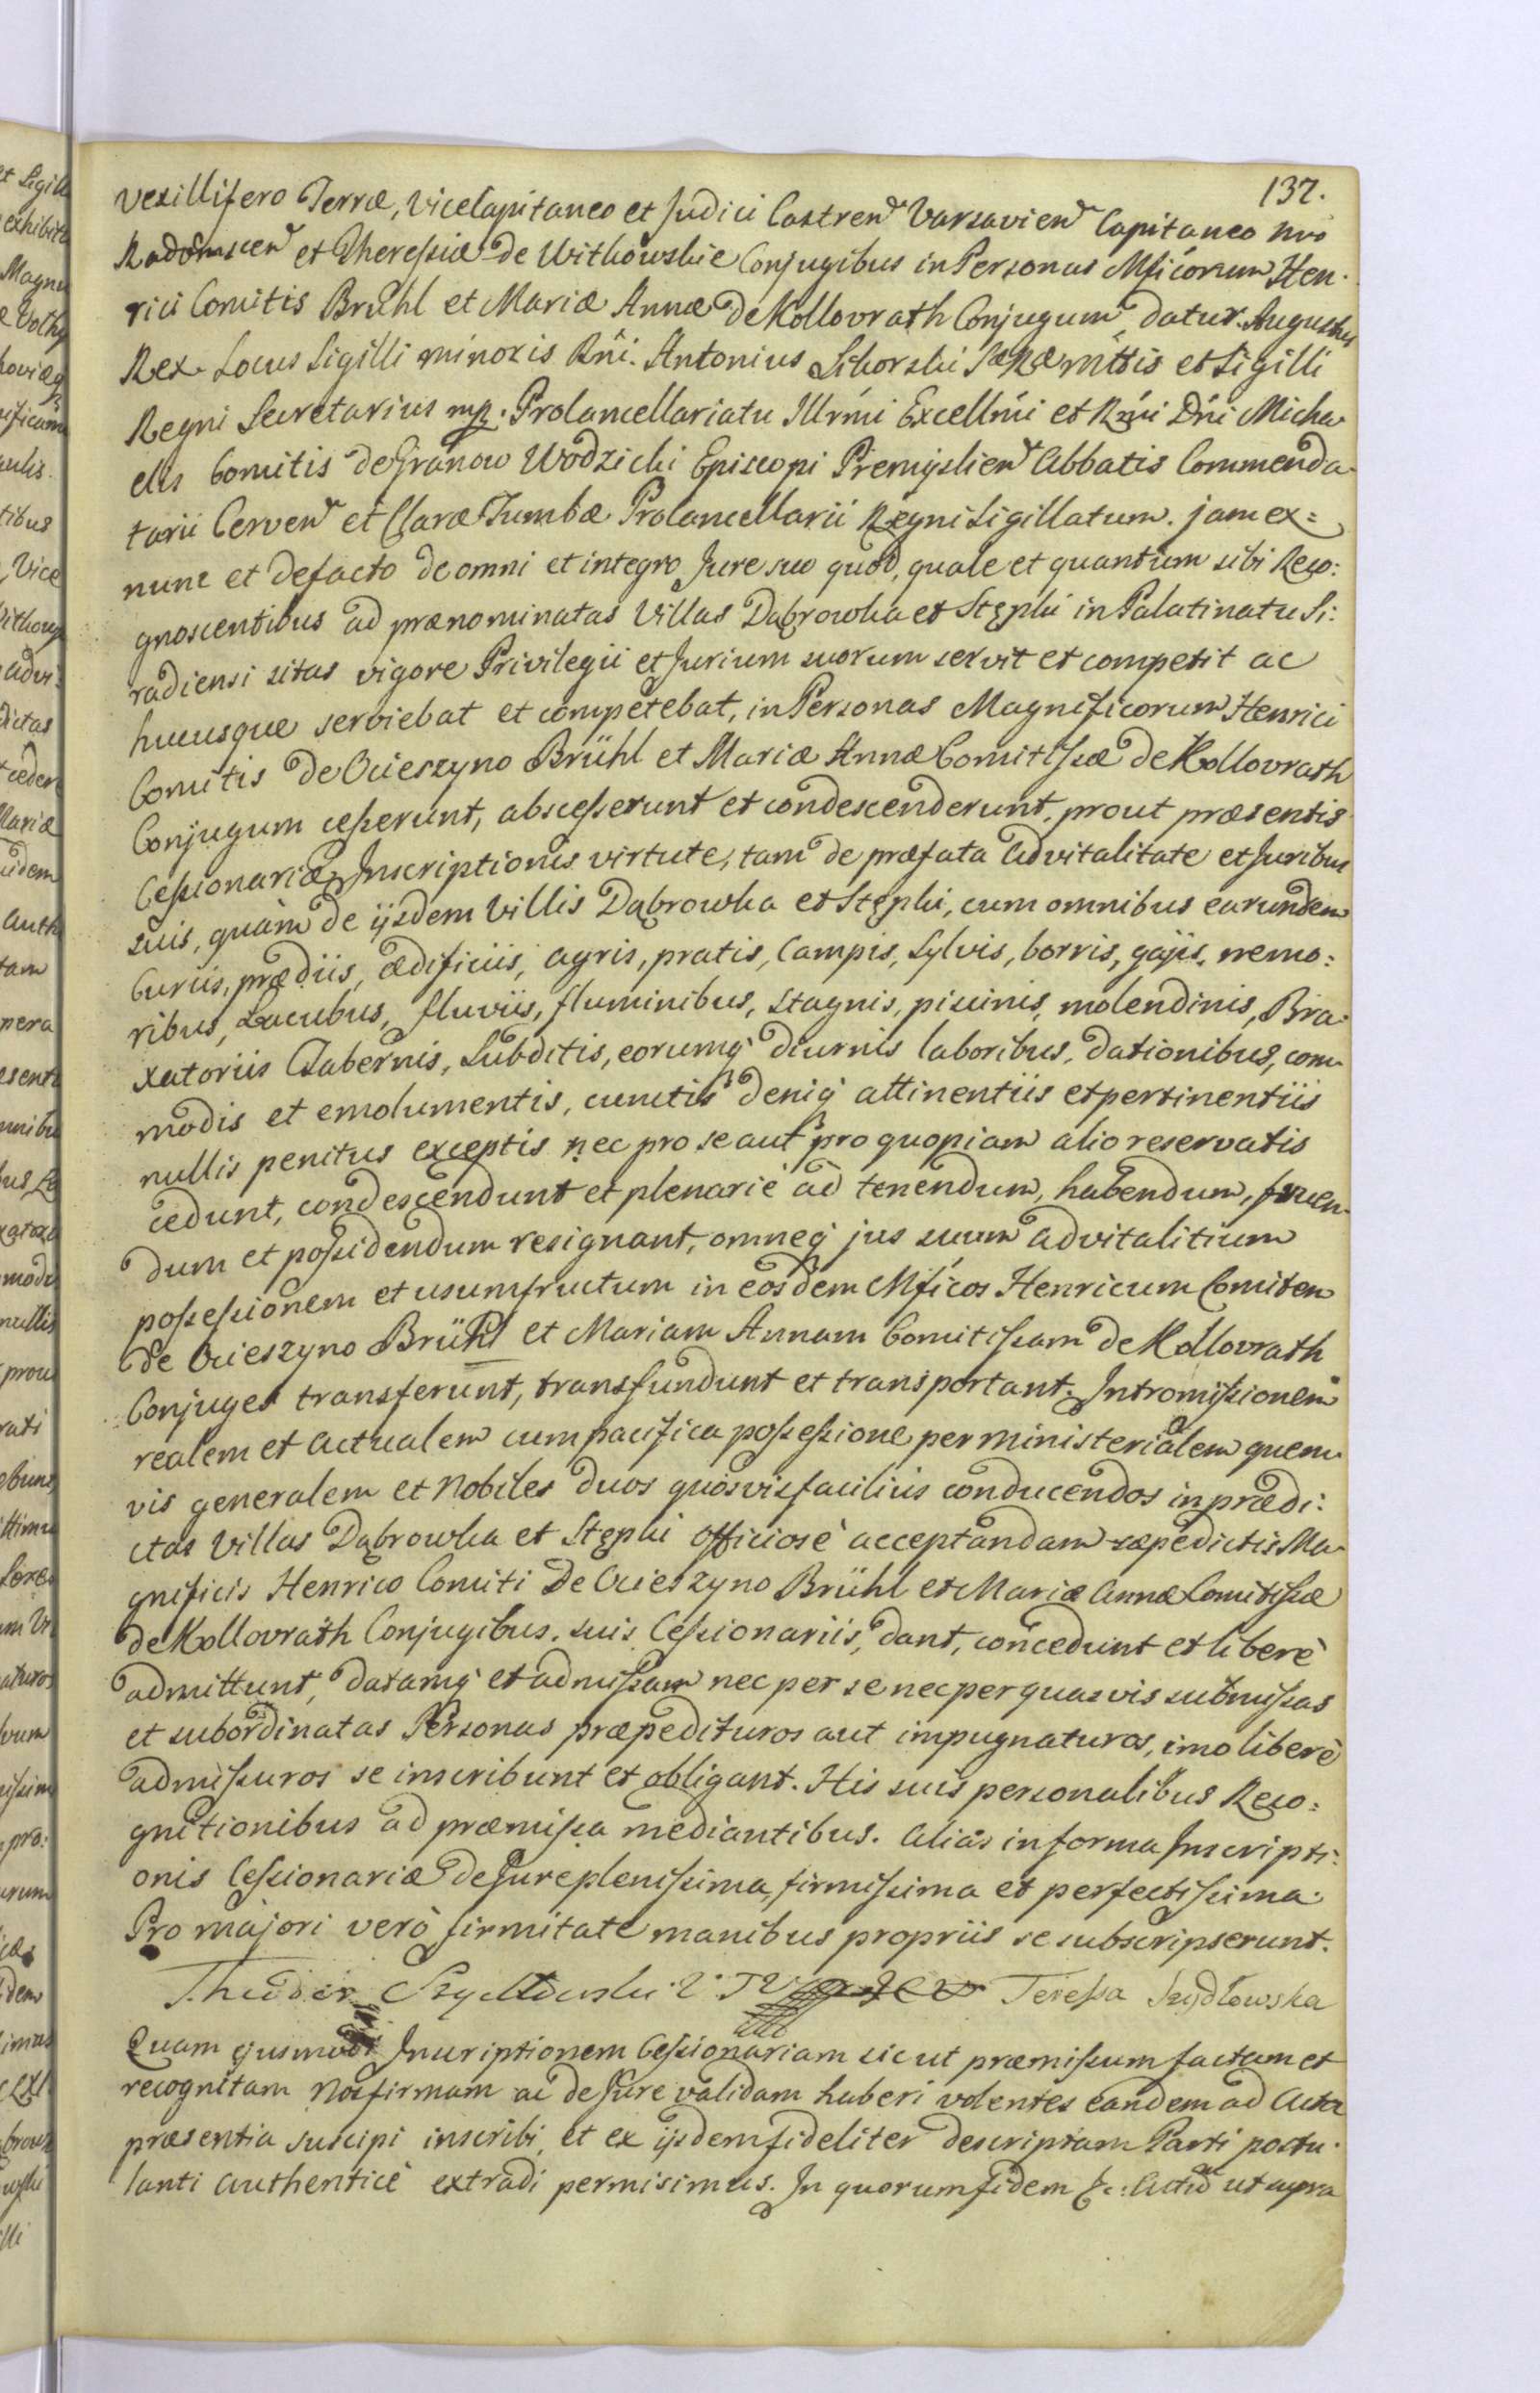 137.
Vexillifero Terræ, ViceCapitaneo et Judici Castren Varsavien Capitaneo nro
Radomscen et Theressiæ de Witkowskie Conjugibus in Personas Mficorum Hen-
rici Comitis Brühl et Mariæ Annæ de Kollovrath Conjugum datur. Augustus
Rex. Locus Sigilli minoris Rñi. Antonius Sikorski SæRæ Mttis et Sigilli
Regni Secretarius mp. Procancellariatu Illrmi Excellmi et Rmi Dñi Micha-
elis Comitis de Granow Wodzicki Episcopi Premyslien Abbatis Commenda-
tarii Cerven et Claræ Tumbæ Procancellarii Regni Sigillatum. jam ex=
nunc et defacto de omni et integro Jure suo quod, quale et quantum sibi Reco:
gnoscentibus ad prænominatas Villas Dąbrowka et Stępki in Palatinatu Si:
radiensi sitas vigore Privilegii et Jurium suorum servit et competit ac
hucusque serviebat et competebat, in Personas Magnificorum Henrici
Comitis de Ocieszyno Brühl et Mariæ Annæ Comitissæ de Kollovrath
Conjugum cesserunt, abscesserunt et condescenderunt, prout præsentis
Cessionariæ Inscriptionis virtute, tam de præfata advitalitate et Juribus
suis, quàm de ijsdem Villis Dąbrowka et Stępki, cum omnibus earundem
Curiis, prædiis, ædificiis, agris, pratis, Campis, Sylvis, borris, gajis, nemo:
ribus, Lacubus, fluviis, fluminibus, stagnis, piscinis, molendinis, Bra-
xatoriis Tabernis, Subditis, eorumq diurnis laboribus, dationibus, com-
modis et emolumentis, cunctis deniq attinentiis et pertinentiis
nullis penitus exceptis nec pro se aut pro quopiam alio reservatis
cedunt, condescendunt et plenariè ad tenendum, habendum, fruen-
dum et possidendum resignant, omneq jus suum advitalitium
possessionem et usumfructum in eosdem Mficos Henricum Comitem
de Ocieszyno Brühl et Mariam Annam Comitissam de Kollovrath
Conjuges transferunt, transfundunt et transportant. Intromissionem
realem et actualem cum pacifica possessione per ministerialem quem-
vis generalem et Nobiles duos quosvis faciliùs conducendos in prædi:
ctas Villas Dąbrowka et Stępki officiosè acceptandam sæpedictis Ma-
gnificis Henrico Comiti de Ocieszyno Brühl et Mariæ Annæ Comitissæ
de Kollovrath Conjugibus. suis Cessionariis, dant, concedunt et liberè
admittunt, datamq et admissam nec per se nec per quasvis submissas
et subordinatas Personas præpedituros aut impugnaturos, imo liberè
admissuros se inscribunt et obligant. His suis personalibus Reco=
gnitionibus ad præmissa mediantibus. aliàs in forma Inscripti:
onis Cessionariæ de Jure plenissima, firmissima et perfectissima.
Pro majori verò firmitate manibus propriis se subscripserunt.
Theodor Szydłowski Teressa Szydłowska
Quam ejusmodi Inscriptionem Cessionariam sic ut præmissum factam et
recognitam Nos firmam ac de Jure validam haberi volentes eandem ad Acta
præsentia suscipi inscribi, et ex ijsdem fideliter descriptam Parti postu-
lanti authenticè extradi permisimus. In quorum fidem &c: Actũ ut supra